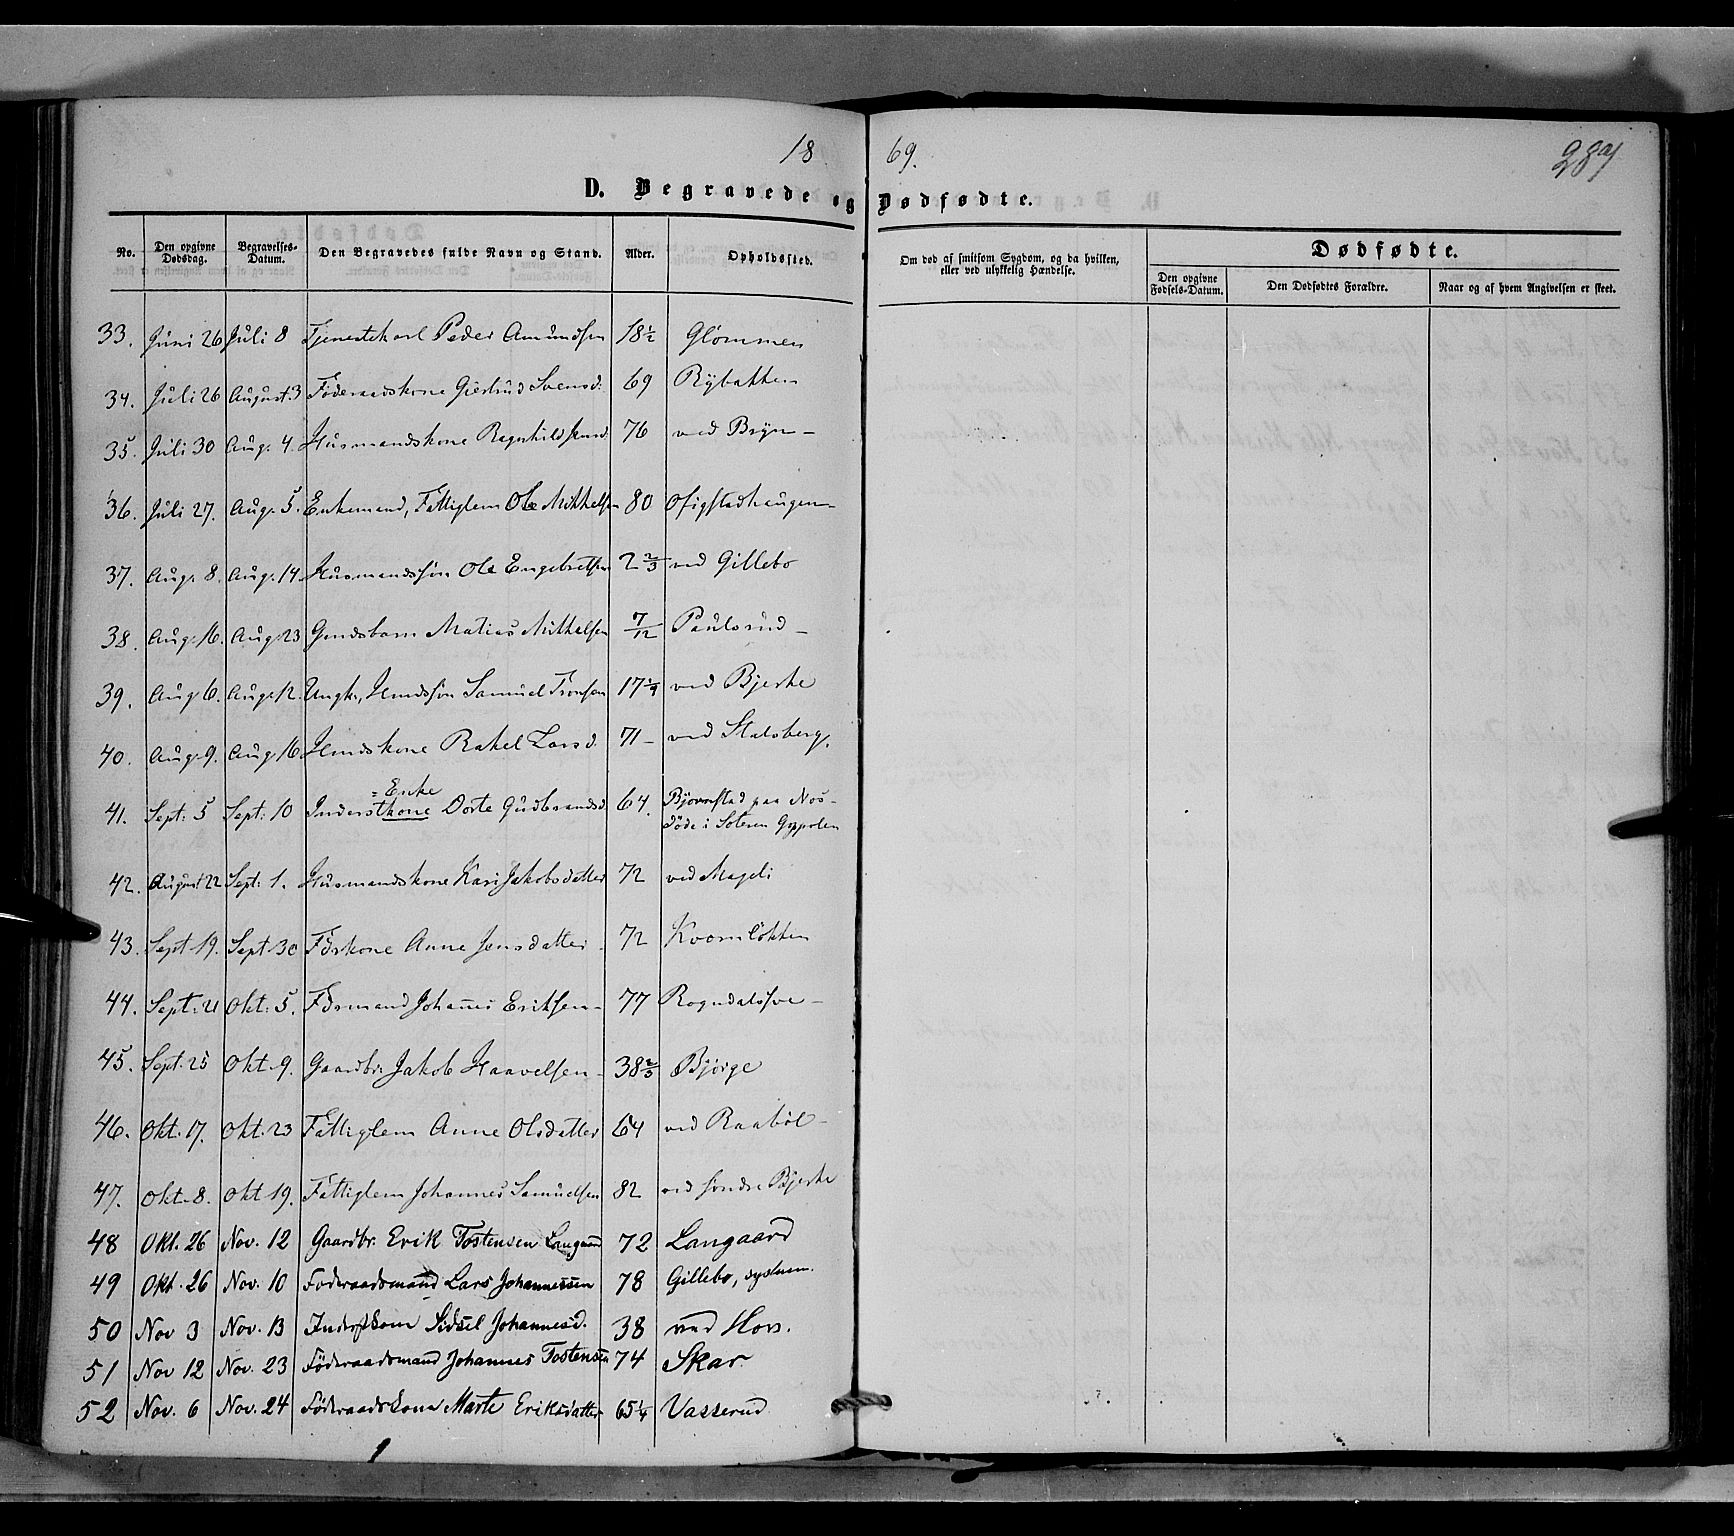 1869.
289
D. Begravede og Dødfødte.
No. Den opgivne Dødsdag. Begravelses-Datum. Den Begravedes fulde Navn og Stand. Alder. Opholdssted. Om død af smitsom Sygdom, og da hvilken, eller ved ulykkelig Hændelse. Dødfødte.
Den opgivne Fødsels-Datum. Den Dødfødtes Forældre. Naar og af hvem Angivelsen er skeet.
33. Juni 26 Juli 8 Tjenestekarl Peder Amundsen 18½ Glommen
34. Juli 26 August 3 Föderaadskone Gjertrud Svensd. 69 Rÿbakken
35. Juli 30 Aug. 4. Husmandskone Ragnhild Jensd. 76 ved Bryn-
36. Juli 27. Aug. 5. Enkemand, Fattiglem Ole Mikkelsen 80 Ofigstadhaugen-
37. Aug. 8. Aug. 14 Husmandssön Ole Engebretsen 2 2/3 ved Gillebo
38. Aug. 16. Aug. 23 Gmdsbarn Matias Mikkelsen 7/12 Paulsrud-
39. Aug. 6. Aug. 12. Ungk., Hmdssön Samuel Tronsen 17 ¼ ved Bjerke
40. Aug. 9. Aug. 16 Hmdskone Rakel Larsd. 71- ved Stalsberg.
= Enke
41. Sept. 5 Sept: 10 Inderstkone Dorte Gudbrandsd. 64. Bjørnstad paa Nos-
döde i
42. August 22 Sept: 1. Husmandskone Kari Jakobsdatter 72 ved Mageli
43. Sept. 19. Sept. 30 Fdrskone Anne Jensdatter 72 Kvomlökken
44. Sept. 21 Okt: 5. Fdrmand Johannes Eriksen- 77 Rogndalssve-
45. Sept. 25 Okt. 9. Gaardbr. Jakob Haavelsen- 38 2/3 Bjørge
46. Okt. 17. Okt. 23 Fattiglem Anne Olsdatter 64 ved Raaböl-
47. Okt. 8. Okt 19. Fattiglem Johannes Samuelsen 82 ved söndre Bjerke
48 Okt. 26 Nov. 12 Gaardbr. Erik Tostensen Langaard 72 Langaard
49 Okt. 26 Nov. 10 Foderaadsmand Lars Johannessen 78 Gillebo,
50 Nov 3 Nov. 13 Inderstkone Sidsel Johannesd. 38 ved Hov.
51 Nov 12 Nov. 23 Föderaadsmand Johannes Tostensen 74 Skar.
52 Nov. 6 Nov. 24 Föderaadskone Marte Eriksdatter 65¼ Vasserud